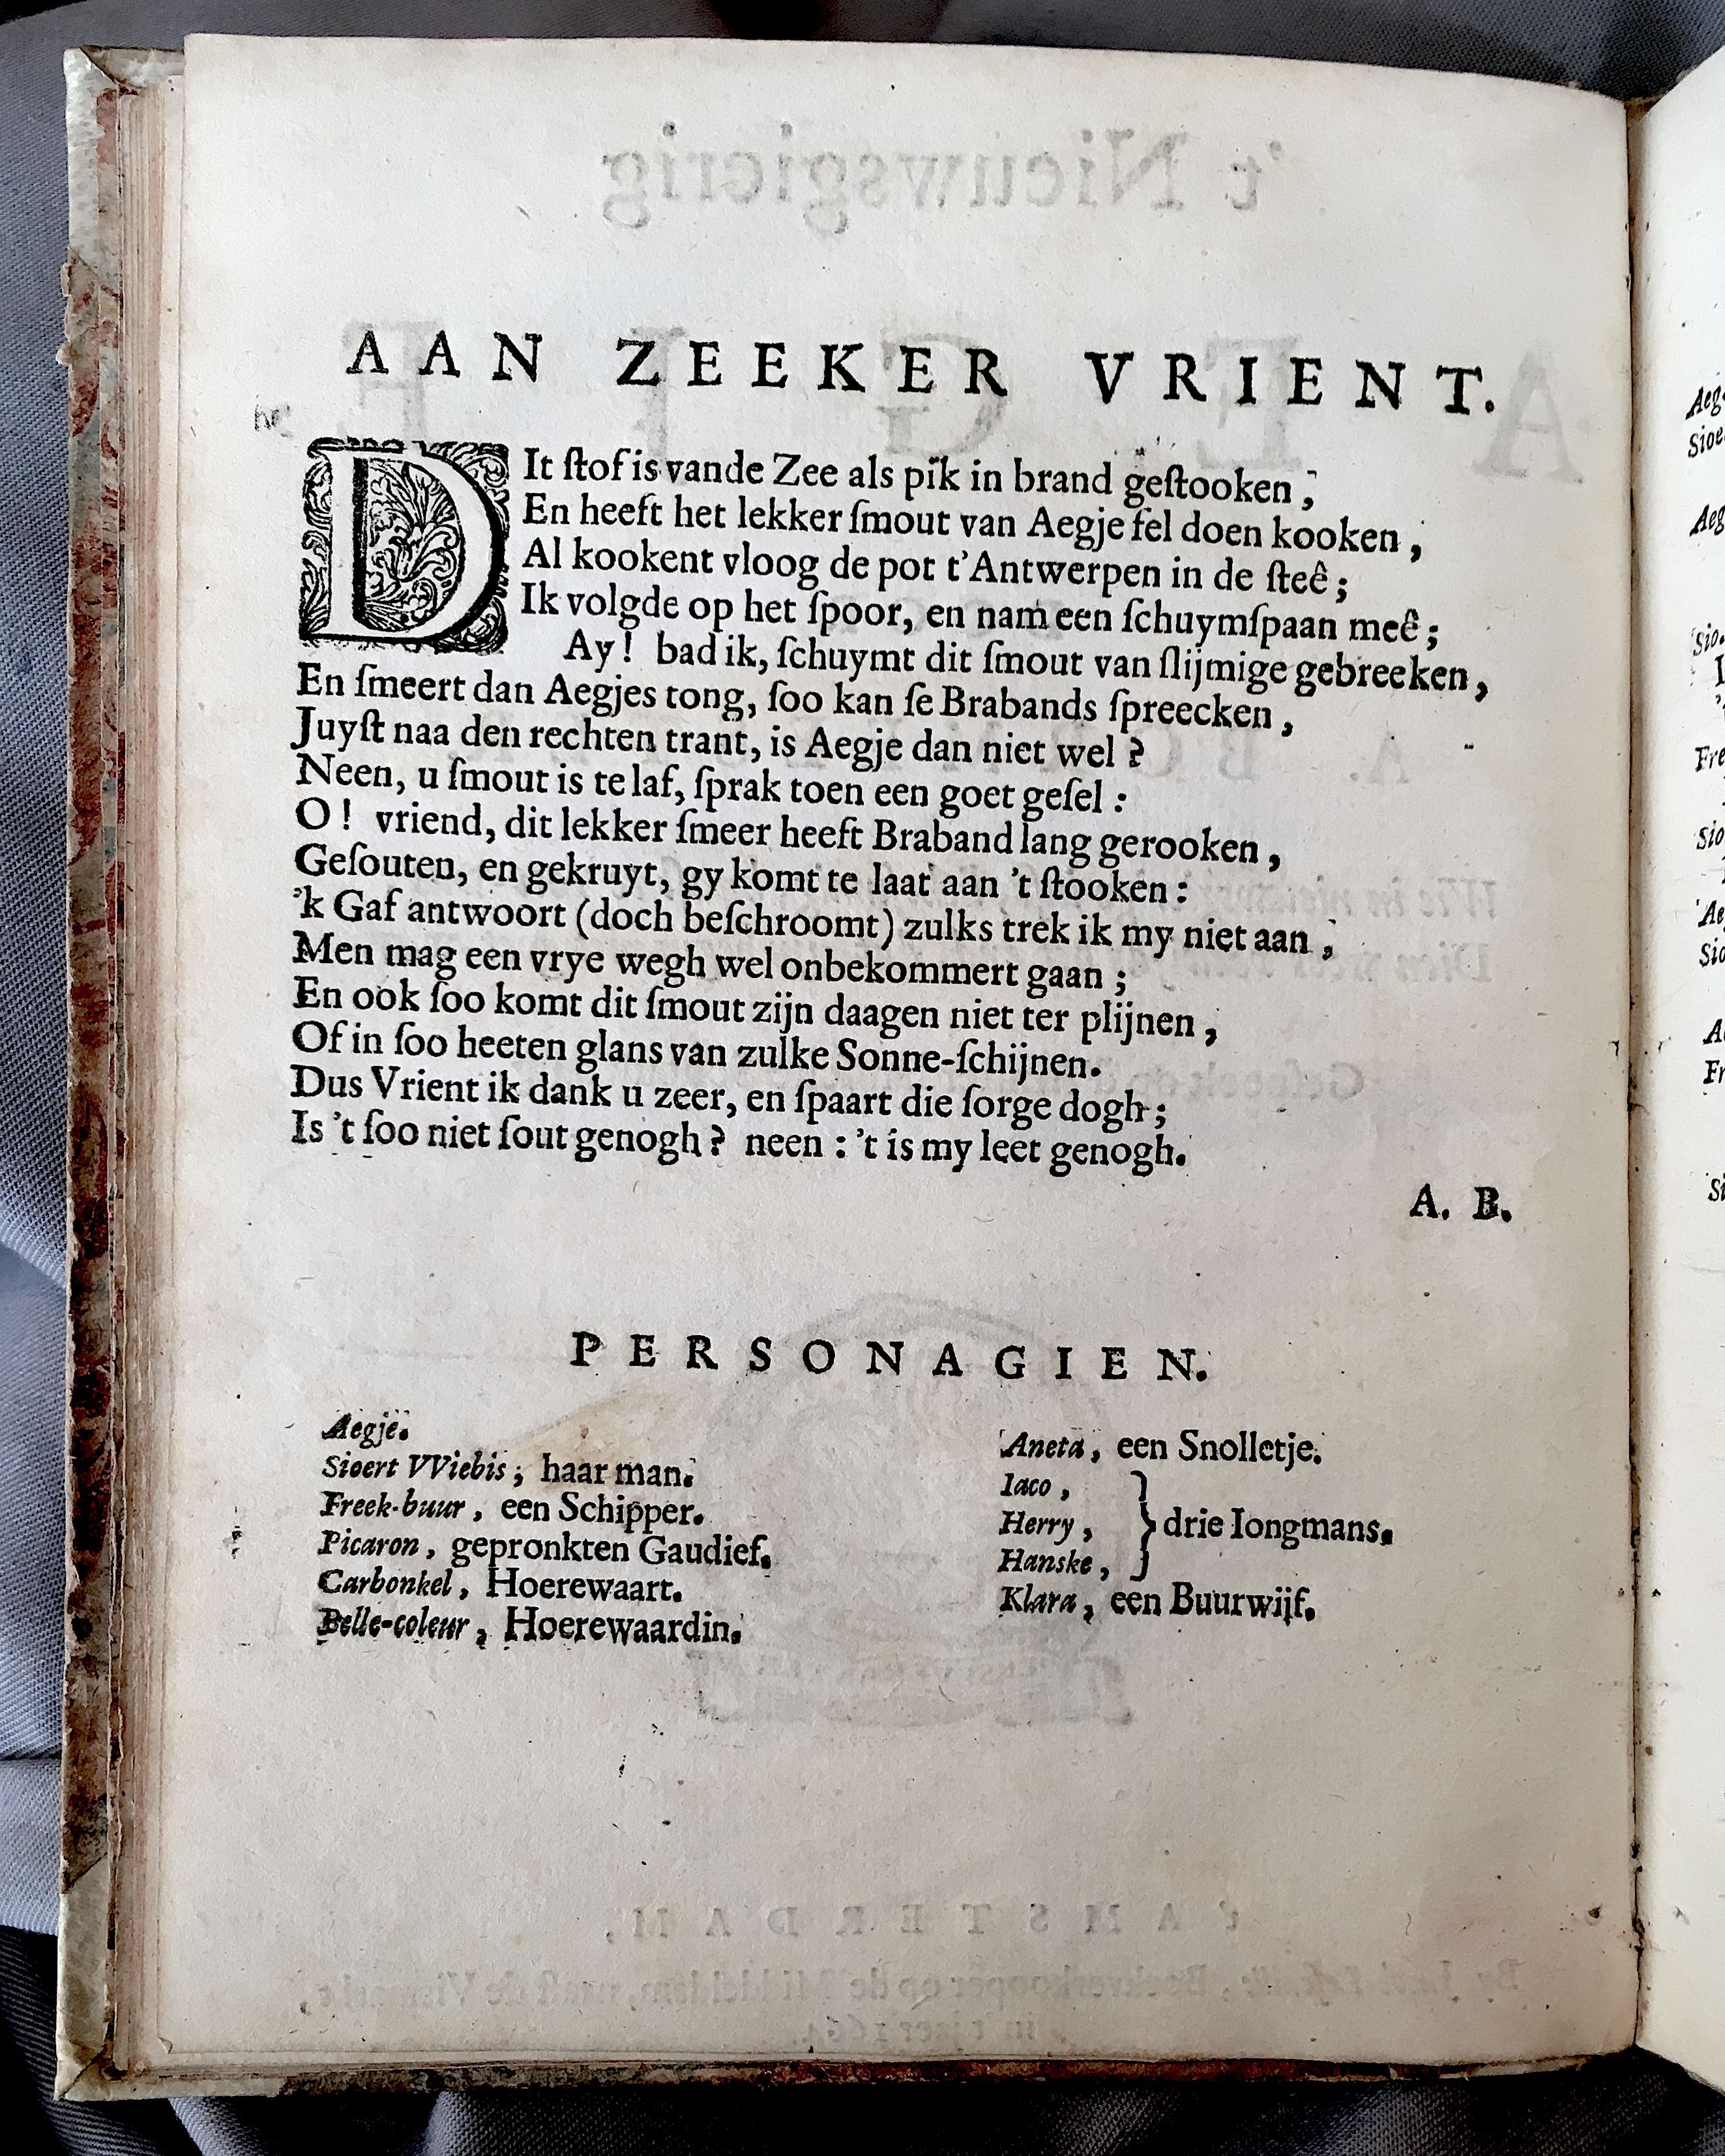 AAN ZEEKER VRIENT.
DIt ſtof is vande Zee als pik in brand geſtooken,
En heeft het lekker ſmout van Aegje fel doen kooken,
Al kookent vloog de pot t'Antwerpen in de ſteê;
Ik volgde op het ſpoor, en nam een ſchuymſpaan meê;
Ay! bad ik, ſchuymt dit ſmout van ſlijmige gebreeken,
En ſmeert dan Aegjes tong, ſoo kan ſe Brabands ſpreecken,
Juyſt naa den rechten trant, is Aegje dan niet wel?
Neen, u ſmout is te laf, ſprak toen een goet geſel:
O! vriend, dit lekker ſmeer heeft Braband lang gerooken,
Geſouten, en gekruyt, gy komt te laat aan 't ſtooken:
'k Gaf antwoort (doch beſchroomt) zulks trek ik my niet aan,
Men mag een vrye wegh wel onbekommert gaan;
En ook ſoo komt dit ſmout zijn daagen niet ter plijnen,
Of in ſoo heeten glans van zulke Sonne-ſchijnen.
Dus Vrient ik dank u zeer, en ſpaart die ſorge dogh;
Is 't ſoo niet ſout genogh? neen: 't is my leet genogh.
A. B.
PERSONAGIEN.
Aegje.
Sioert VViebis, haar man.
Freek-buur, een Schipper.
Picaron, gepronkten Gaudief.
Carbonkel, Hoerewaart.
Belle-coleur, Hoerewaardin.
Aneta, een Snolletje.
Iaco,
Herry, } drie Iongmans.
Hanske,
Klara, een Buurwijf.